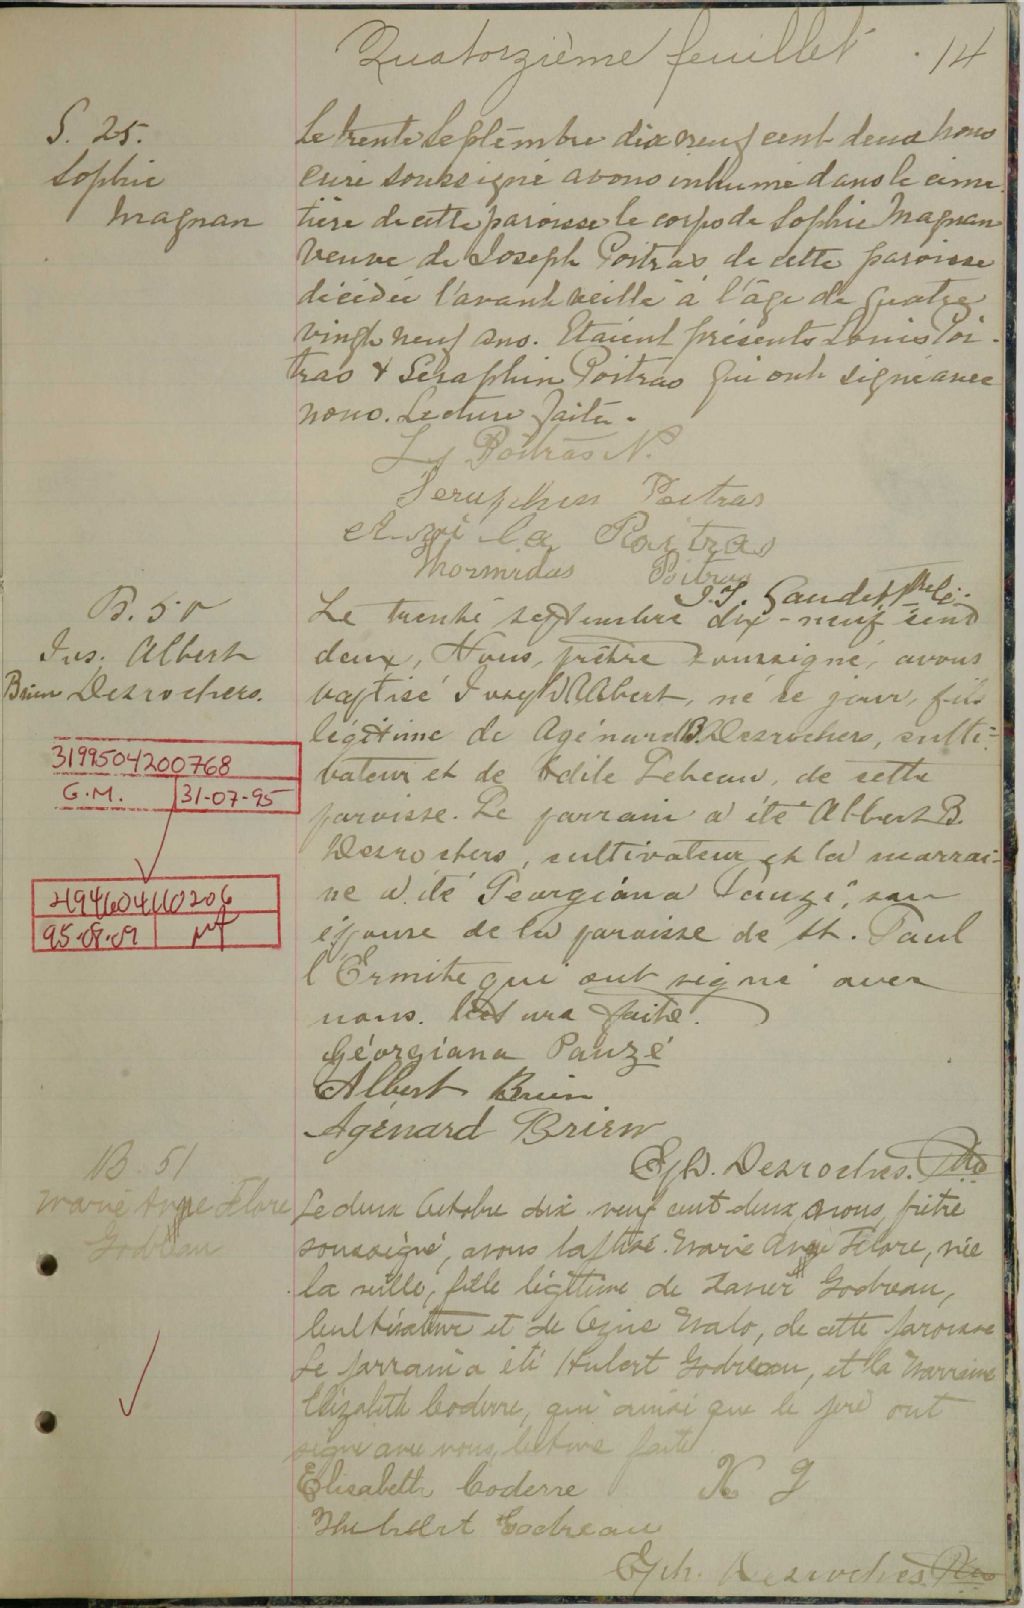 Quatorzième feuillet . 14
S. 25.
Sophie
Magnan
Le trente Septembre dix neuf cent deux nous
curé soussigné avons inhumé dans le cime
tière de cette paroisse le corps de Sophie Magnan
veuve de Joseph Poitras de cette paroisse
décédée l'avant veille à l'âge de quatre
vingt neuf ans. Etaient présents Louis Poi-
tras & Séraphin Poitras qui ont signé avec
nous. Lecture faite.
Ls Poitras N.
Seraphin Poitras
Poitras
Thormidas Poitras
J. T. Gaudet Ptre
B. 50
Jos. Albert
Brien Desrochers.
Le trente septembre dix-neuf cent
deux, Nous, prêtre soussigné, avons
baptisé Joseph Albert, né ce jour, fils
légitime de Agénard B. Desrochers, culti-
vateur et de Odile Lebeau, de cette
paroisse. Le parrain a été Albert B.
Desrochers, cultivateur et la marrai-
ne a été Georgiana Pauzé, son
épouse de la paroisse de St. Paul
l'Ermite qui ont signé avec
nous. Lecture faite.
Géorgiana Pauzé
Albert Brien
Agénard Brien
Eph. Desrochers. Ptre
319950420768
G.M. 31-07-95
95-08-09
B 51
Marie Ange Flore
Godreau
Le deux Octobre dix neuf cent deux, nous prêtre
soussigné, avons baptisé Marie Ange Flore, née
la veille, fille légitime de Xavier Godreau,
Cultivateur et de Malo, de cette paroisse
Le parrain a été Hubert Godreau, et la Marraine
Elizabeth Coderre, qui ainsi que le père ont
signé avec nous, lecture faite
Elisabeth Coderre X G
Hubert Godreau
Eph. Desrochers Ptre